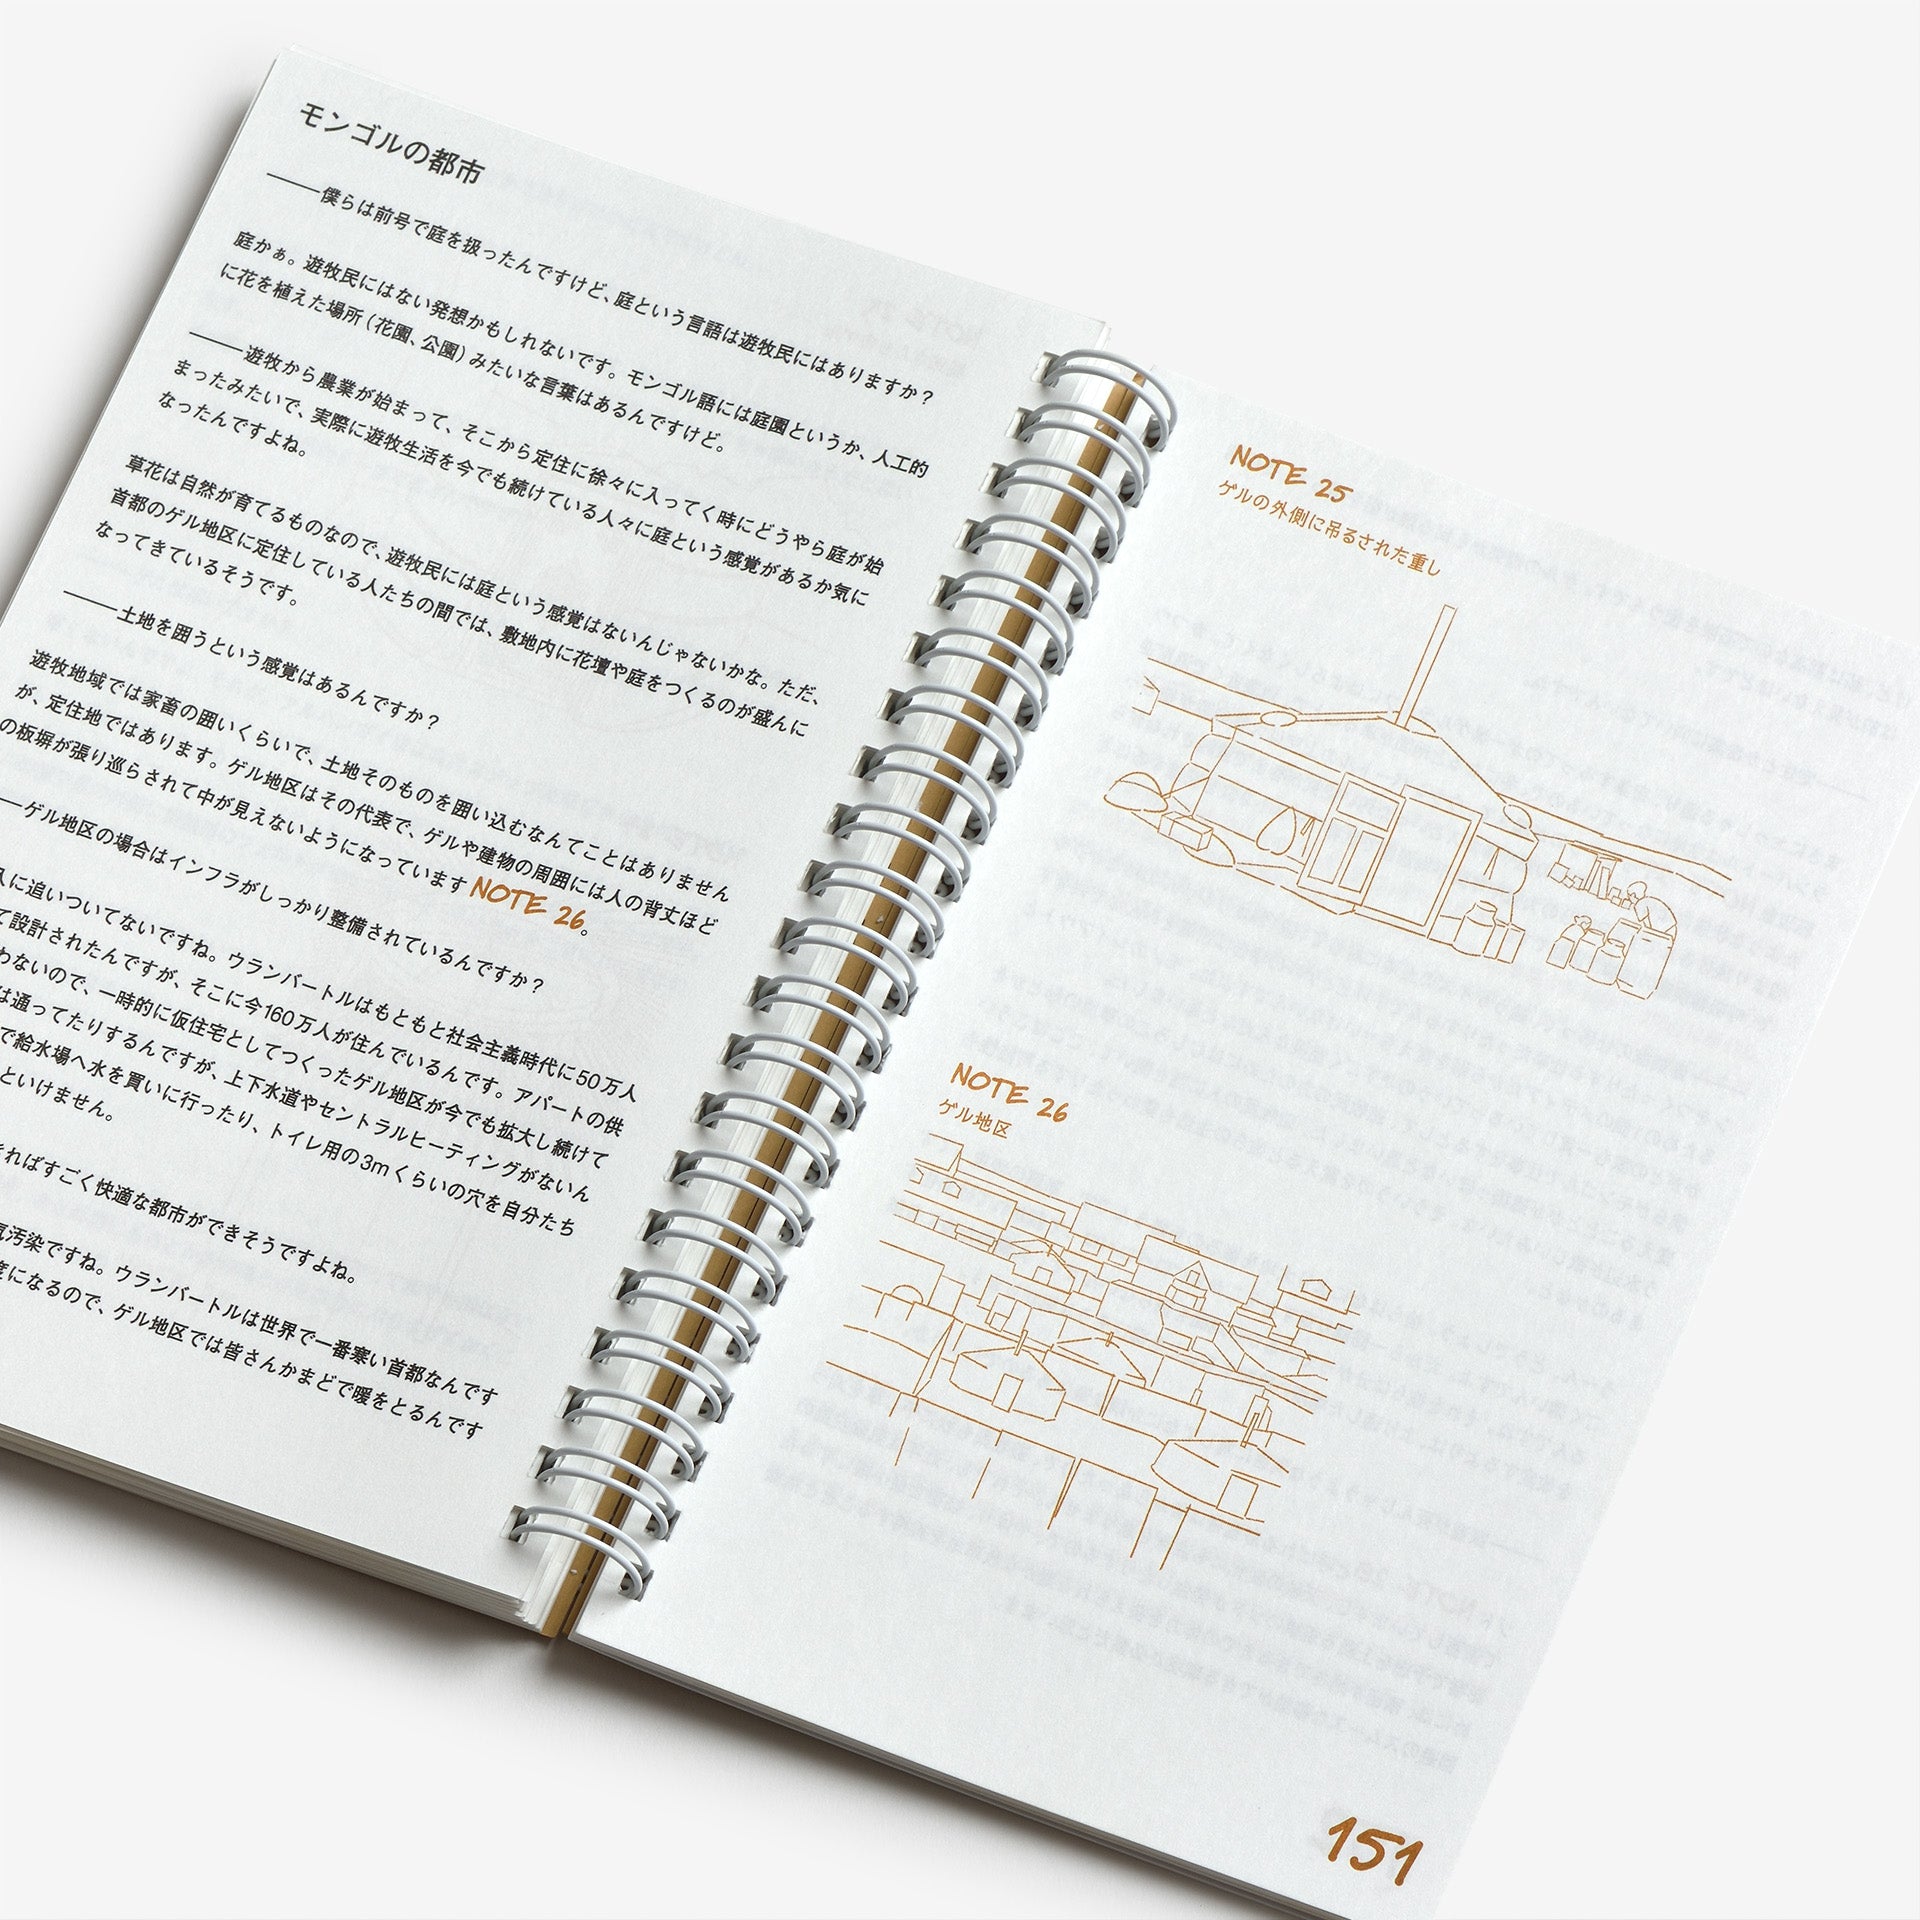 モンゴルの都市
――僕らは前号で庭を扱ったんですけど、庭という言語は遊牧民にはありますか？
庭かぁ。遊牧民にはない発想かもしれないです。モンゴル語には庭園というか、人工的
に花を植えた場所（花園、公園）みたいな言葉はあるんですけど。
――遊牧から農業が始まって、そこから定住に徐々に入ってく時にどうやら庭が始
まったみたいで、実際に遊牧生活を今でも続けている人々に庭という感覚があるか気に
なったんですよね。
草花は自然が育てるものなので、遊牧民には庭という感覚はないんじゃないかな。ただ、
首都のゲル地区に定住している人たちの間では、敷地内に花壇や庭をつくるのが盛んに
なってきているそうです。
――土地を囲うという感覚はあるんですか？
遊牧地域では家畜の囲いくらいで、土地そのものを囲い込むなんてことはありません
が、定住地ではあります。ゲル地区はその代表で、ゲルや建物の周囲には人の背丈ほど
の板塀が張り巡らされて中が見えないようになっています NOTE 26。
―ゲル地区の場合はインフラがしっかり整備されているんですか？
に追いついてないですね。ウランバートルはもともと社会主義時代に50万人
て設計されたんですが、そこに今160万人が住んでいるんです。アパートの供
わないので、一時的に仮住宅としてつくったゲル地区が今でも拡大し続けて
は通ってたりするんですが、上下水道やセントラルヒーティングがないん
で給水場へ水を買いに行ったり、トイレ用の3mくらいの穴を自分たち
といけません。
ればすごく快適な都市ができそうですよね。
汚染ですね。ウランバートルは世界で一番寒い首都なんです
度になるので、ゲル地区では皆さんかまどで暖をとるんです
NOTE 25
ゲルの外側に吊るされた重し
NOTE 26
ゲル地区
151